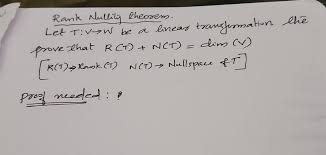 Rank Nullity theorem.
Let T:V→W be a linear transformation the
prove that R(T) + N(T) = dim (V)
[R(T)→Rank(T) N(T)→ Nullspace of T]
proof needed : ?